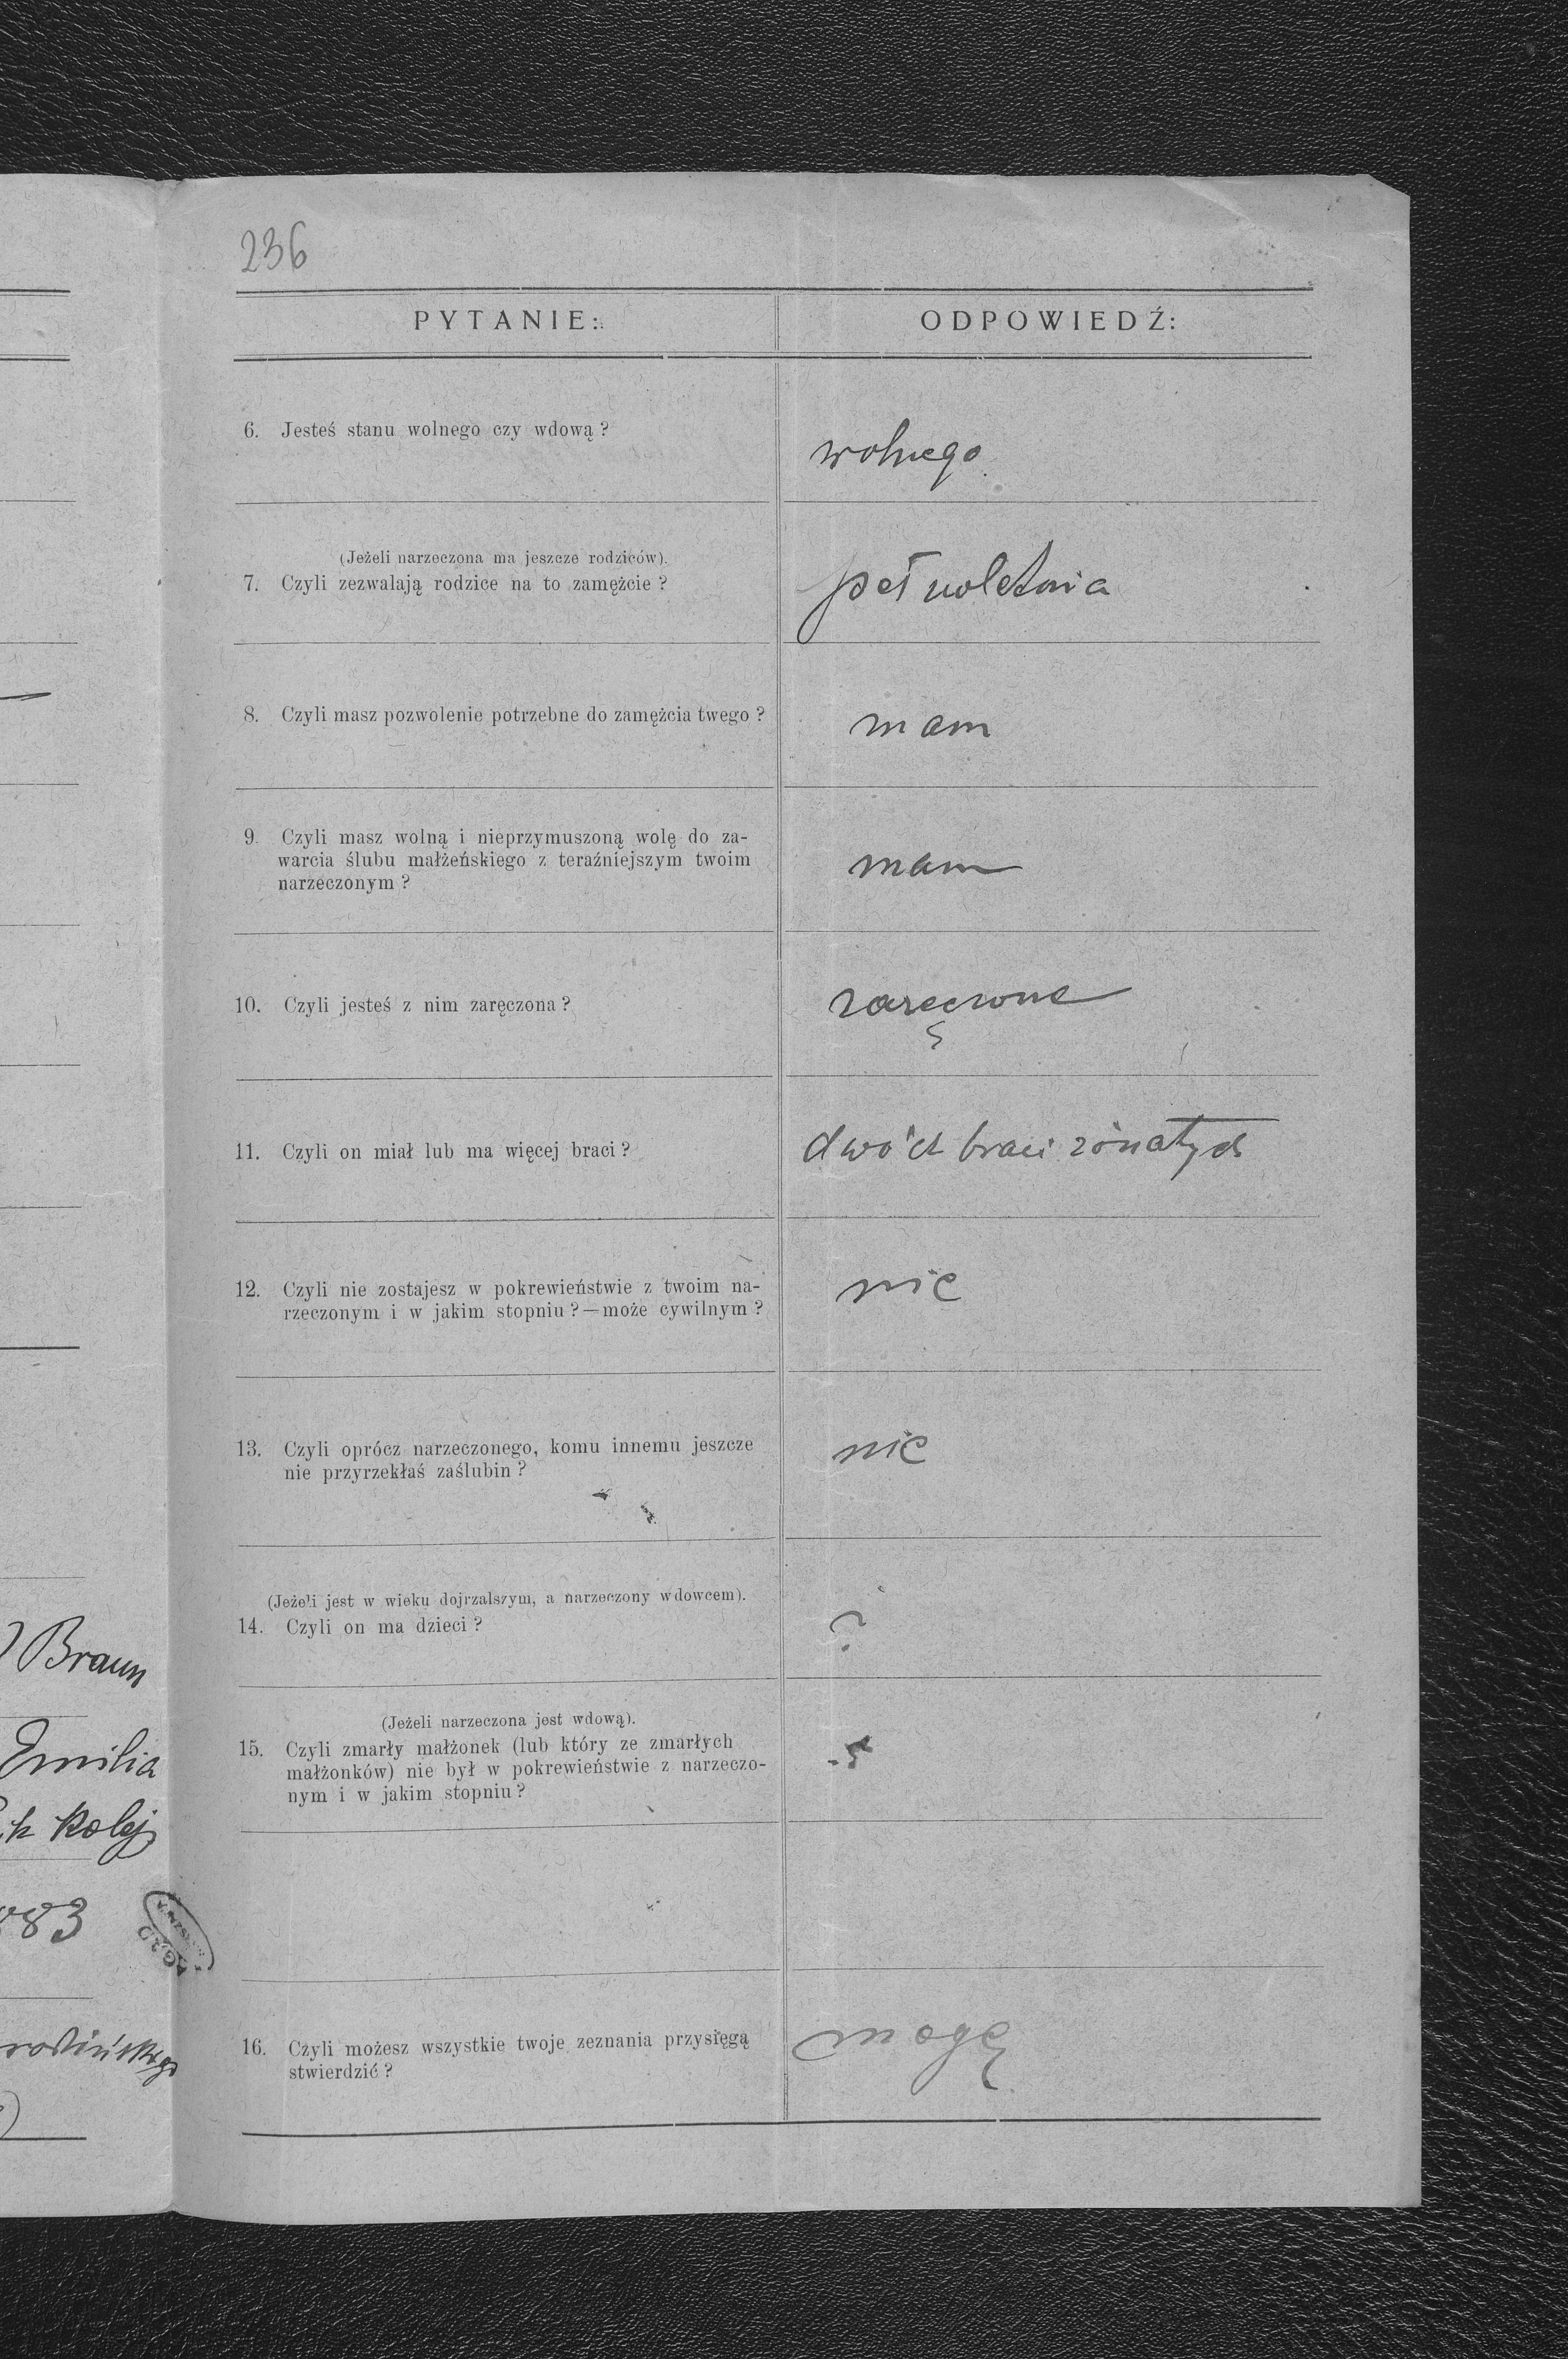 236
PYTANIE:
ODPOWIEDŹ:
6. Jesteś stanu wolnego czy wdową?
wolnego
(Jeżeli narzeczona ma jeszcze rodziców).
7. Czyli zezwalają rodzice na to zamężcie?
pełnoletnia
8. Czyli masz pozwolenie potrzebne do zamężcia twego?
mam
9. Czyli masz wolną i nieprzymuszoną wolę do za-
warcia ślubu małżeńskiego z teraźniejszym twoim
narzeczonym?
mam
10. Czyli jesteś z nim zaręczona?
zaręczona
11. Czyli on miał lub ma więcej braci?
dwóch braci żonatych
12. Czyli nie zostajesz w pokrewieństwie z twoim na-
rzeczonym i w jakim stopniu?—może cywilnym?
nie
13. Czyli oprócz narzeczonego, komu innemu jeszcze
nie przyrzekłaś zaślubin?
nie
(Jeżeli jest w wieku dojrzalszym, a narzeczony wdowcem).
14. Czyli on ma dzieci?
(Jeżeli narzeczona jest wdową).
15. Czyli zmarły małżonek (lub który ze zmarłych
małżonków) nie był w pokrewieństwie z narzeczo-
nym i w jakim stopniu?
16. Czyli możesz wszystkie twoje zeznania przysięgą
stwierdzić?
mogę
Braun
Emilia
kolej
883
AGAD